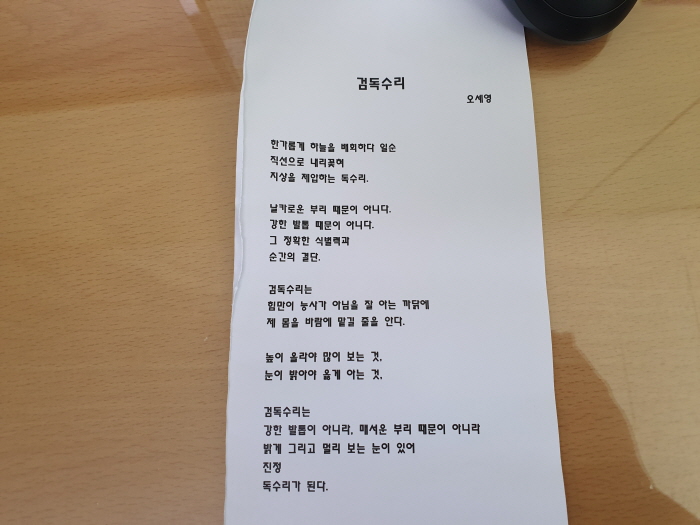 검독수리
오세영
한가롭게 하늘을 배회하다 일순
직선으로 내리꽂혀
지상을 제압하는 독수리.
날카로운 부리 때문이 아니다.
강한 발톱 때문이 아니다.
그 정확한 식별력과
순간의 결단.
검독수리는
힘만이 능사가 아님을 잘 아는 까닭에
제 몸을 바람에 맡길 줄을 안다.
높이 올라야 많이 보는 것,
눈이 밝아야 옳게 아는 것,
검독수리는
강한 발톱이 아니라, 매서운 부리 때문이 아니라
밝게 그리고 멀리 보는 눈이 있어
진정
독수리가 된다.